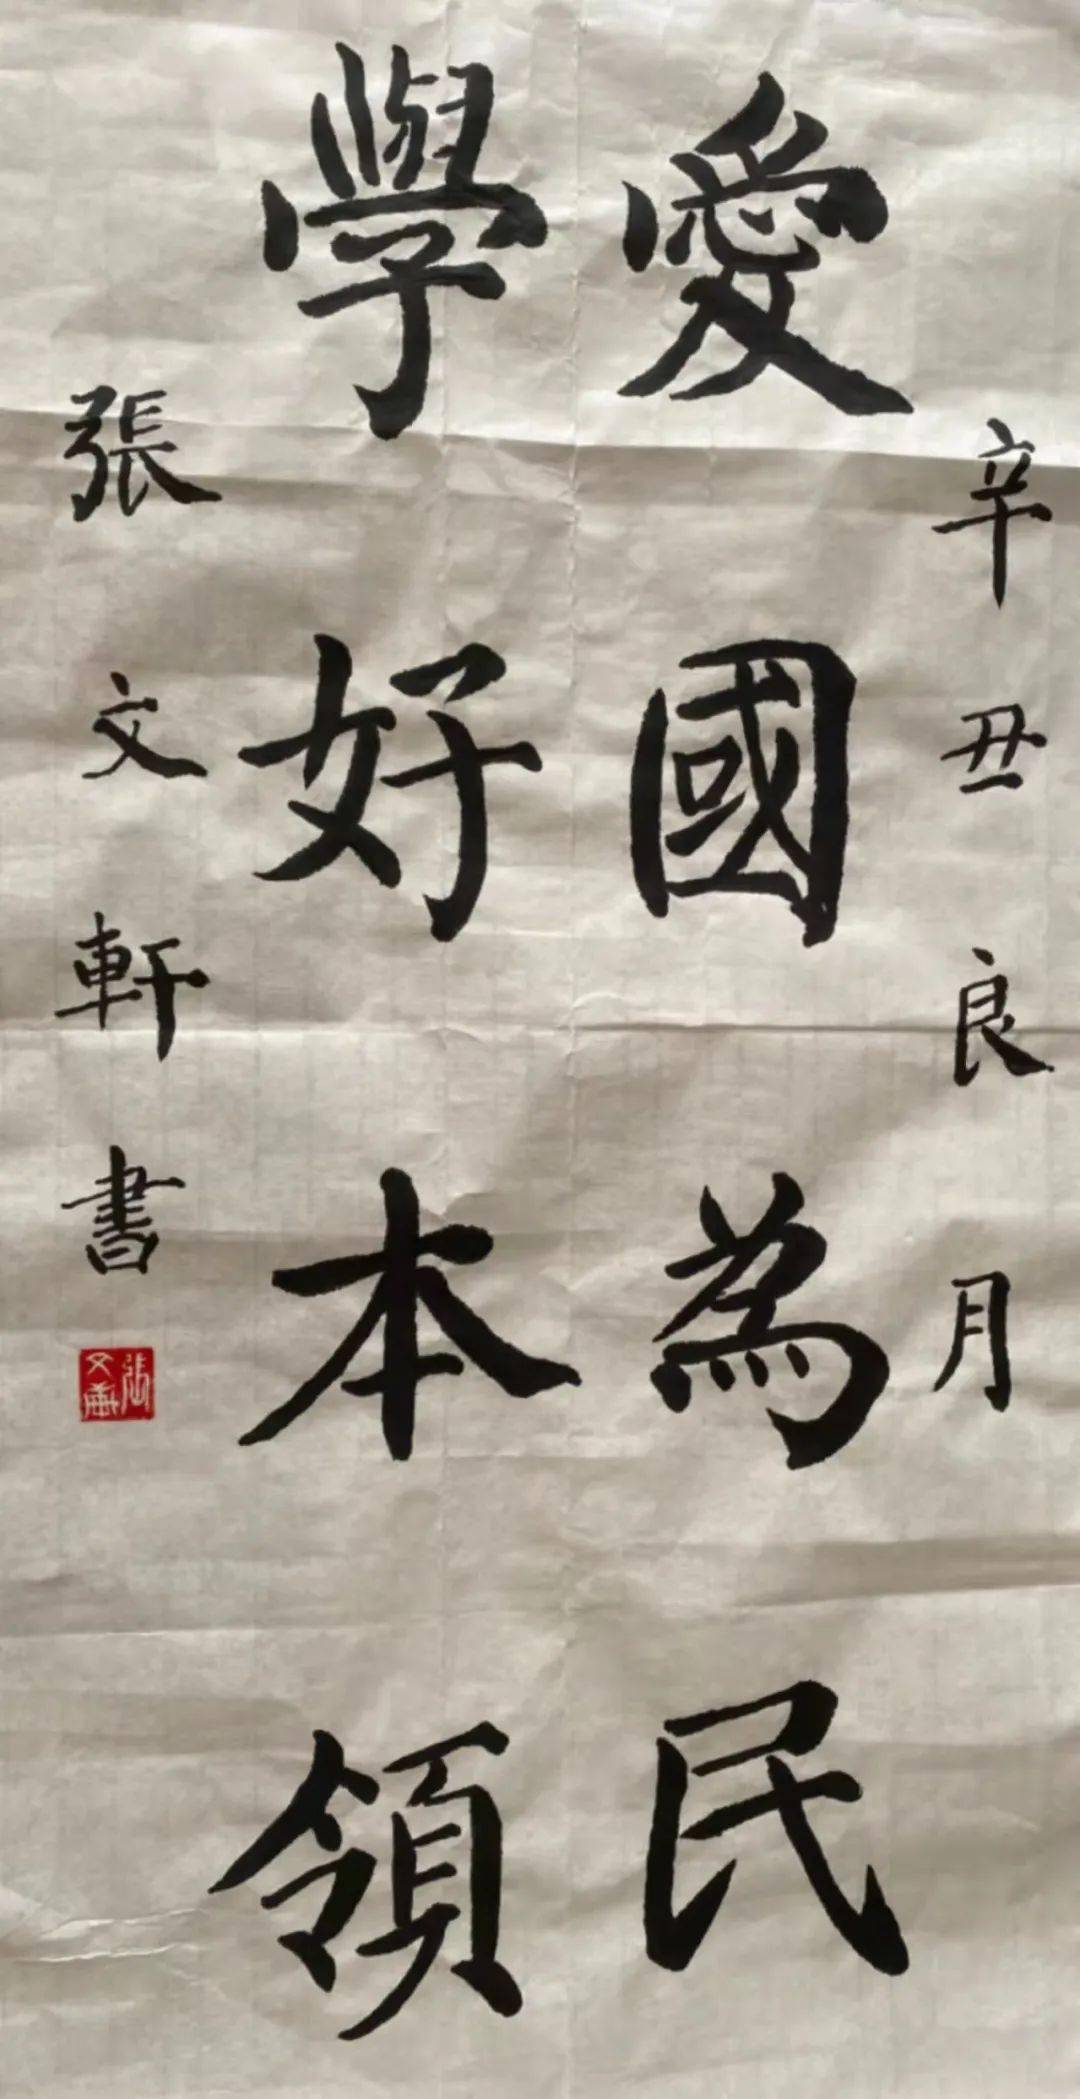 辛丑良月
愛國為民
學好本領
張文軒書